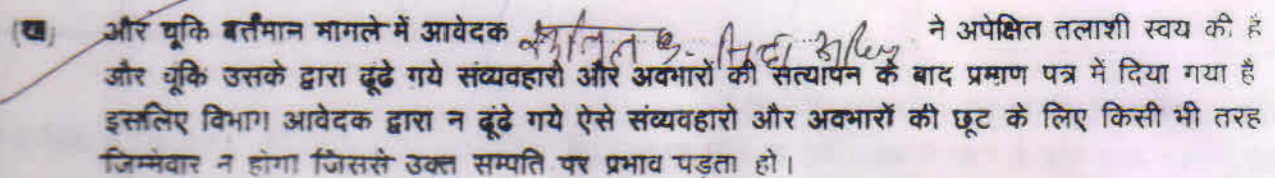 (ख) और चूकि बर्तमान मामले में आवेदक ने अपेक्षित तलाशी स्वय की है
और चूकि उसके द्वारा ढूंढे गये संव्यवहारो और अवभारों की सत्यापन के बाद प्रमाण पत्र में दिया गया है
इसलिए विभाग आवेदक द्वारा न ढूंढे गये ऐसे संव्यवहारो और अवभारों की छूट के लिए किसी भी तरह
जिम्मेवार न होगा जिससे उक्त सम्पति पर प्रभाव पड़ता हो।